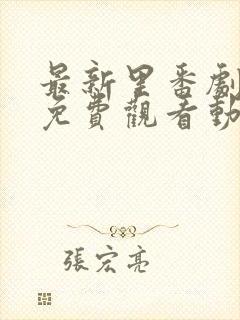 最新里番劇
免費觀看動
張宏亮